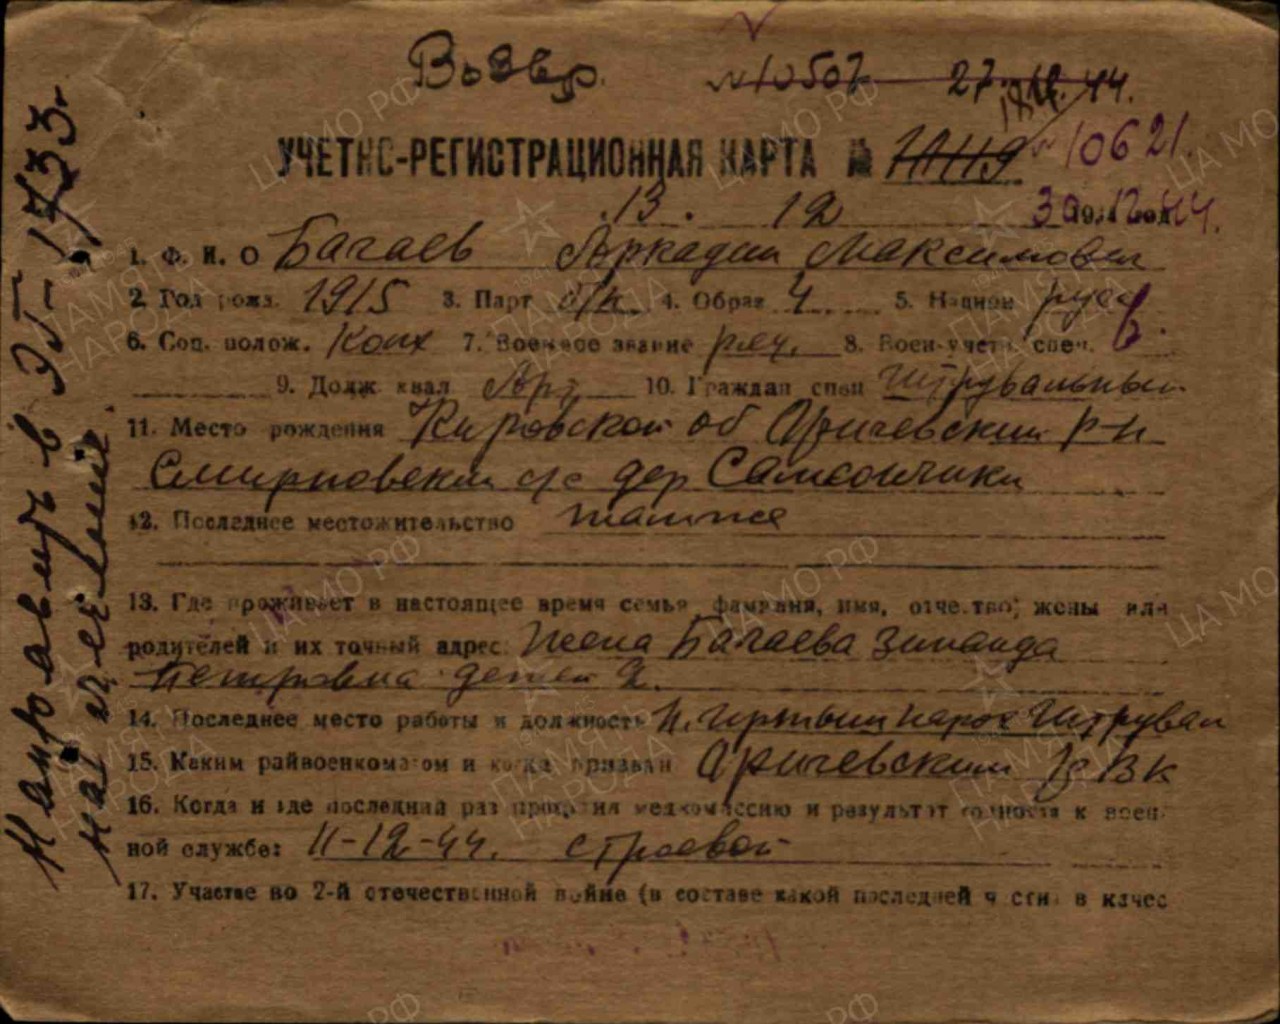 Возвр.
№10507 27.12.44.
УЧЕТНО-РЕГИСТРАЦИОННАЯ КАРТА № 10119 №10621.
13. 12 30.12.44.
1. Ф. И. О Багаев Аркадий Максимович
2. Год рожд. 1915 3. Парт б/п 4. Образ 4 5. Национ русс
6. Соц. полож. Колх 7. Военное звание ряд. 8. Воен-учетн. спец.
9. Долж квал 10. Граждан спец
11. Место рождения Кировской об Оричевский р-н
Смирновский с/с дер Самсончики
12. Последнее местожительство там же
13. Где проживает в настоящее время семья, фамилия, имя, отчество, жены или
родителей и их точный адрес: Жена Багаева Зинаида
Петровна детей 2.
14. Последнее место работы и должность
15. Каким райвоенкоматом и когда призван Оричевским РВК
16. Когда и где последний раз проходил медкомиссию и результат годности к воен-
ной службе: 11-12-44. строевой
17. Участие во 2-й отечественной войне (в составе какой последней части в качес
Направлен в ЭГ-1733.
на излечение.
ЦА МО РФ
ПАМЯТЬ НАРОДА